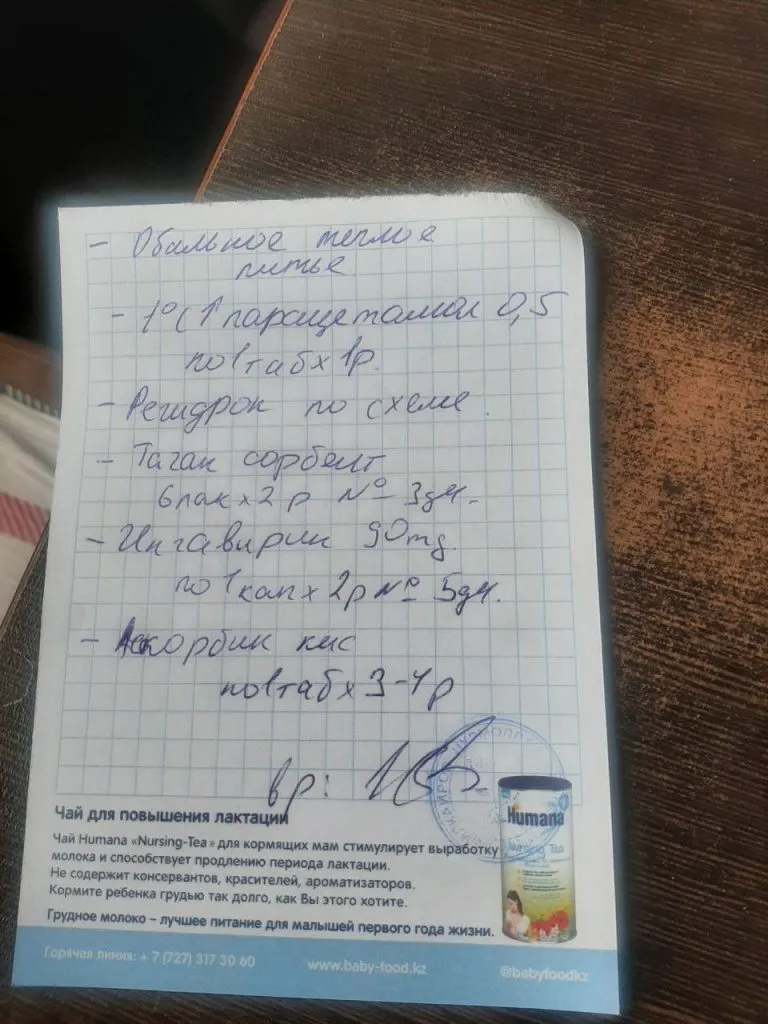 - Обальное теплое
питье
- t°C↑ парацетамол 0,5
по 1 таб х 1р.
- Регидрон по схеме.
- Таган сорбент
6 пак х 2 р № 3 дн.
- Ингавирин 90 mg.
по 1 кап х 2 р № 5 дн.
- Аскорбин кис
по 1 таб х 3-4 р
вр:
Чай для повышения лактации
Чай Humana «Nursing-Tea» для кормящих мам стимулирует выработку
молока и способствует продлению периода лактации.
Не содержит консервантов, красителей, ароматизаторов.
Кормите ребенка грудью так долго, как Вы этого хотите.
Грудное молоко – лучшее питание для малышей первого года жизни.
Humana
Nursing Tea
Горячая линия: + 7 (727) 317 30 60
www.baby-food.kz
@babyfoodkz